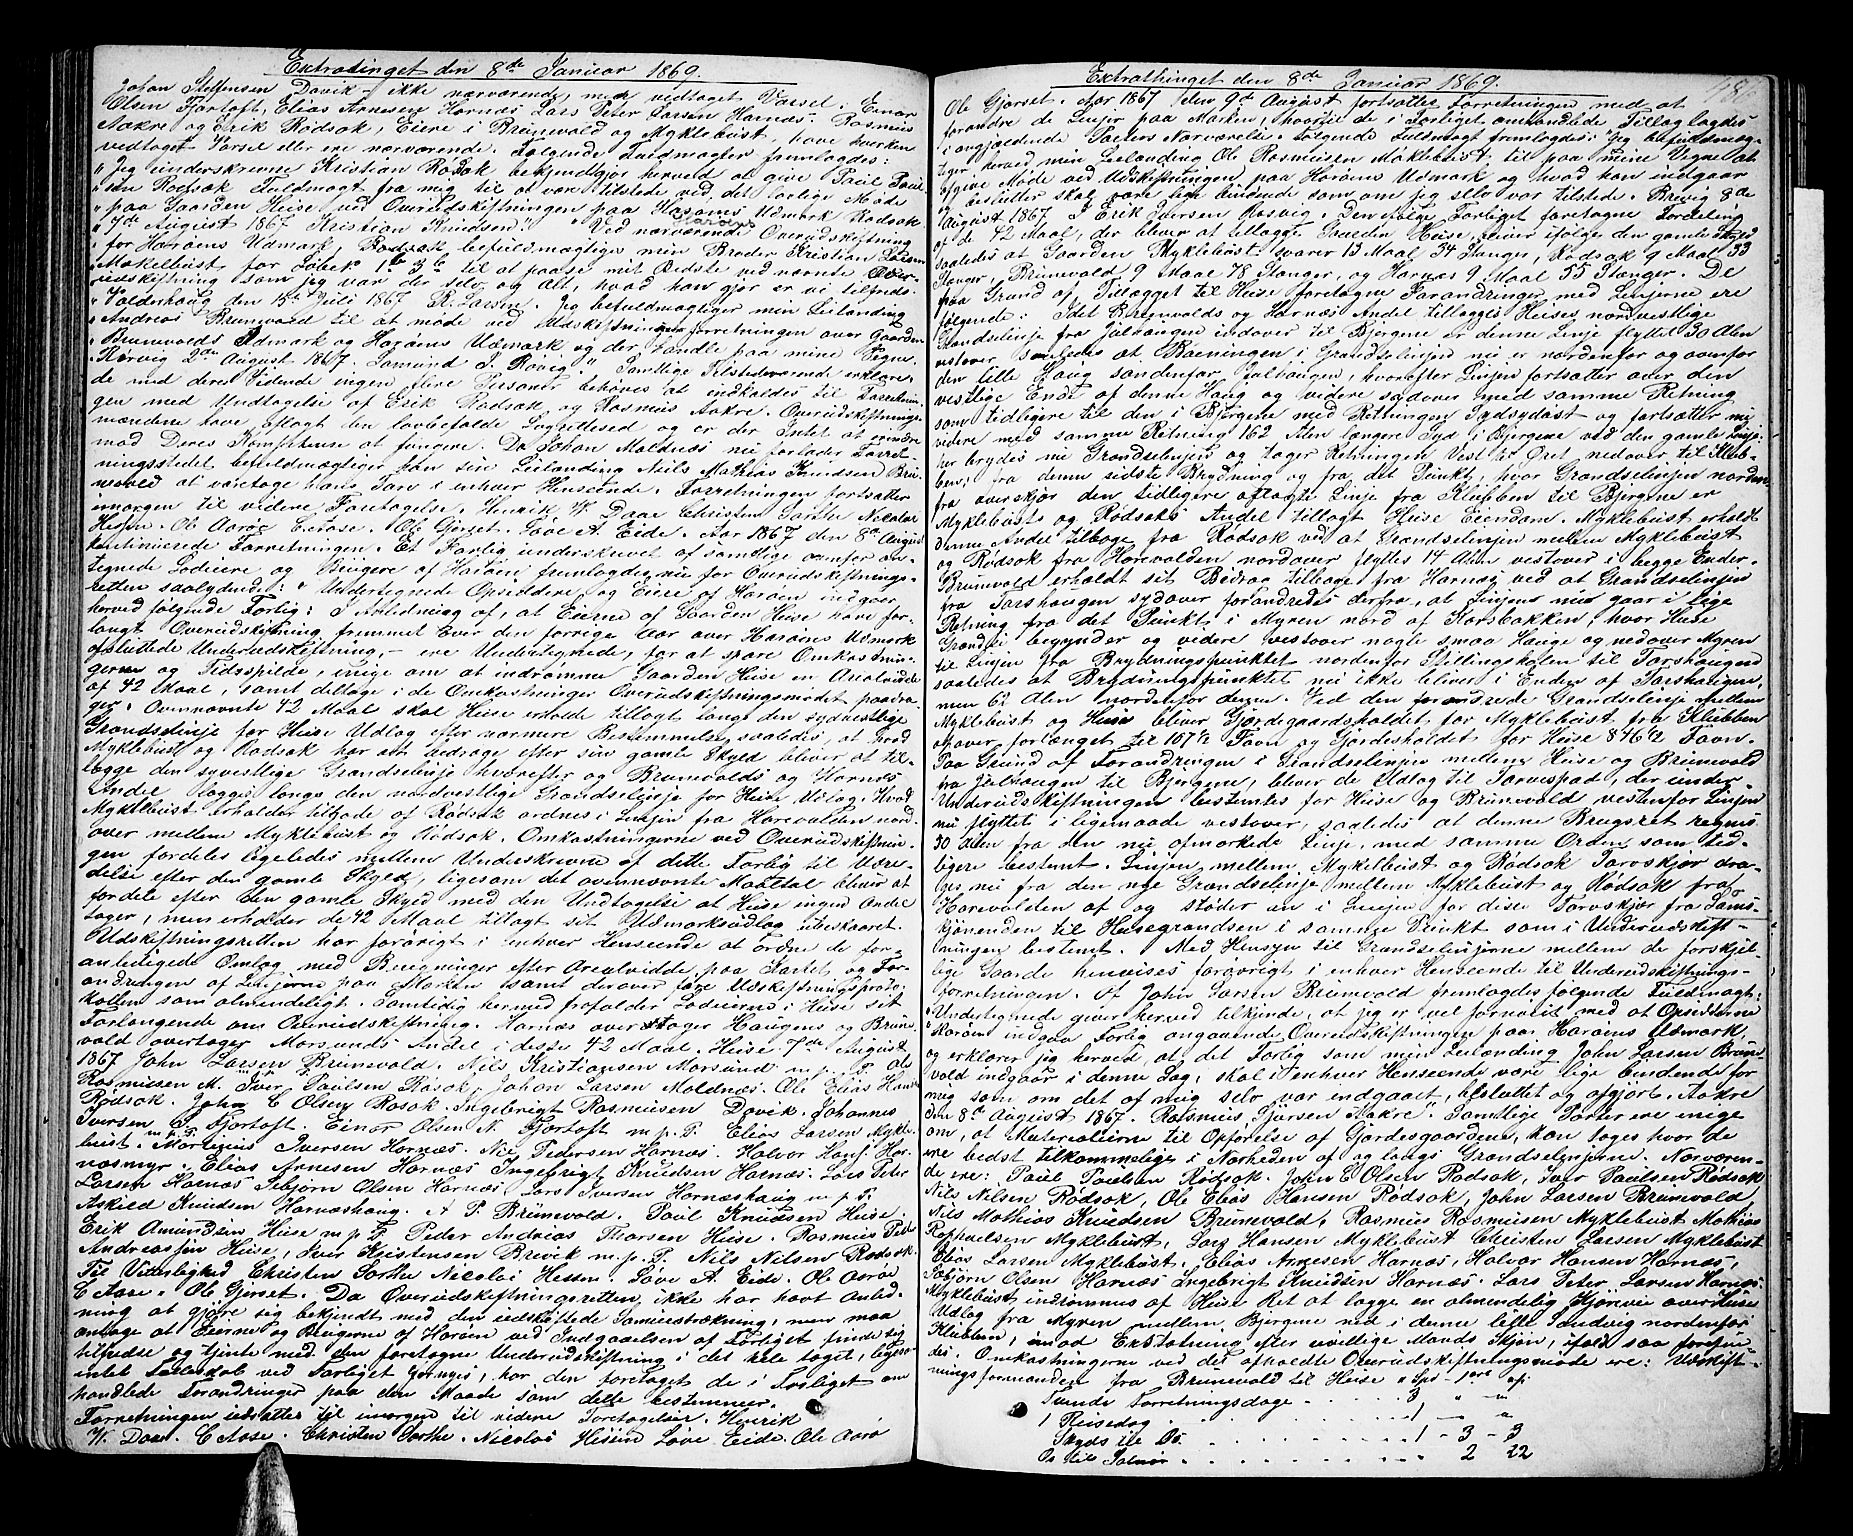 Extratinget den 8de Januar 1869.
Johan Steffensen Davik - ikke nærværende, med vedtaget Varsel. Einar
Olsen Fjørtoft, Elias Arnesen Harnæs Lars Peter Larsen Harnæs. Rasmus
Aakre og Erik Rødsøk, Eiere i Brunvold og Myklebust, have hverken
vedtaget Varsel eller ere nærværende. Følgende Fuldmagter fremlagdes:
"Jeg underskrevne Kristian Rødsøk bekjendtgjør herved at give Paul Paul-
"sen Rødsøk Fuldmagt fra mig til at være tilstede ved det lovlige Møde
"paa Gaarden Heise ved Overudskiftningen paa Harams Udmark Rødsøk
"7de August 1867 Kristian Knudsen". Ved nærværende Overudskiftning
"for Harams Udmark, Rødsøk befuldmægtiges min Broder Kristian Larsen
"Mækelbust for Løbek 1b 3b til at paase mit Bedste ved nævnte Over-
"udskiftning som jeg var der selv og alt, hvad han gjør er vi tilfreds.
"Valderhaug den 15de Juli 1867 R. Larsen. Jeg befuldmægtiger min Leilænding
"Andreas Brunvold til at møde ved Udskiftningsforretningen over Gaarden
"Brunvolds Udmark og Harams Udmark og der handle paa mine Vegne.
"Rørvig 2den August 1867. Samund J. Røvig." Samtlige Tilstedeværende erklære-
de med deres Vidende ingen flere Personer behøves at indkaldes til Forretnin-
gen med Undtagelse af Erik Rødsøk og Rasmus Aakre. Overudskiftnings-
mændene have aflagt den lovbefalede Laugrettesed og er der Intet at erindre
mod Deres Kompetense at fungere. Da Johan Moldnæs nu forlader Forret-
ningsstedet befuldmægtiger han sin Leilænding Nils Mathias Knudsen Bru-
nevold at varetage hans Tarv i enhver Henseende. Forretningen fortsætter
imorgen til videre Foretagelse. Henrik W. Daae Christen Sorthe Nicolai
Hessen. Ole Aarøe E Aase. Ole Gjørset. Løve A. Eide. Aar 1867 den 8de August
kontinuerede Forretningen. Et Forlig underskrevet af samtlige ovenfor an-
tegnede Lodeiere og Brugere af Haram fremlagdes nu for Overudskiftnings-
retten saalydende: "Undertegnede Opsiddere og Eiere af Haram indgaar
herved følgende Forlig: I Anledning af, at Eierne af Gaarden Heise have for-
langt Overudskiftning fremmet over den forrige Aar over Harams Udmark
afsluttede Underudskiftning, - ere Undertegnede, for at spare Omkostnin-
gerne og Tidsspilde, enige om at indrømme Gaarden Heise en Arealvidde
af 42 Maal, samt deltage i de Omkostninger Overudskiftningsmødet paadra-
ger. Ovennævnte 42 Maal skal Heise erholde tillagt langs den sydvestlige
Grændselinje for Heise Udlæg efter nærmere Bestemmelse saaledes, at hvad
Myklebust og Rødsøk har at bidrage efter sin gamle Skyld bliver at til-
lægge den syvestlige Grændselinje hvorefter og Brunevolds og Harnæs
Andel lægges langs den nordvestlige Grændselinje for Heise Udlæg. Hvad
Myklebust erholder tilgode af Rødsøk ordnes i Linjen fra Harevolden nord-
over mellem Myklebust og Rødsøk. Omkostningerne ved Overudskiftnin-
gen fordeles ligeledes mellem Underskrevne af dette Forlig til Udre-
delse efter den gamle Skyld, ligesom det ovennævnte Maaltal bliver at
fordele efter den gamle Skyld med den Undtagelse at Heise ingen Andel
tager, men erholder de 42 Maal tillagt sit Udmarksudlæg ubeskaaret.
Udskiftningsretten har forøvrigt i enhver Henseende at ordne de for-
anledigede Omlæg med Beregninger efter Arealvidde paa Kartet og For-
andringen af Linjerne paa Marken samt derover føre Udskiftningsproto-
kollen som almindeligt. Samtidig hermed frafalder Lodeierne i Heise sit
Forlangende om Overudskiftning. Harnæs overtager Haugens og Brune-
vold overtager Morsunds Andel i desse 42 Maal. Heise 7de August
1867 John Larsen Brunevold. Nils Kristiansen Morsund m. p. P. Ole
Rasmusen M. Iver Paulsen Røsøk, Johan Larsen Moldnæs. Ole Elias Hansen
Rødsøk. John E Olsen Røsøk. Ingebrigt Rasmusen Davik. Johannes
Iversen S. Fjørtoft. Einar Olsen N. Fjørtoft m. p. P. Elias Larsen Mykle-
bust. m. p. P. Martinus Iversen Harnæs. Nie Pedersen Harnæs. Halvor Hans. Har-
næsmyr. Elias Arnesen Harnæs Ingebrigt Knudsen Harnæs. Lars Peter
Larsen Harnæs Asbjørn Olsen Harnæs Lars Iversen Hornæshaug m. p. P.
Askild Knudsen Harnæshaug. A P. Brunevold. Paul Knudsen Heise.
Erik Amundsen Heise m. p. P. Peder Andrias Thorsen Heise. Rasmus Peter
Andreassen Heise, Iver Kristensen Brevik m. p. P. Nils Nilsen Rødsøk.
Til Vitterlighed Christen Sorthe Nicolai Hessen. Løve A. Eide. Ole Aarøe
E Aase. Ole Gjørset. Da Overudskiftningsretten ikke har havt Anled-
ning at gjøre sig bekjendt med den udskiftede Jamestrækning, men maa
antage at Eierne og Brugerne af Haram ved Indgaaelsen af Forliget finde sig
tilfredse og tjente med den foretagne Underudskiftning i det hele taget, ligesom
intet ved Forliget, har den foretaget de i Forliget om
handlede Forandringer paa den Maade som dette bestemmer.
Forretningen udsættes til imorgen til videre Foretagelse. Henrik
W. Daae. E Aase. Christen Sorthe. Nicolai Hessen Løve Eide. Ole Aarø
Extrathinget den 8de Januar 1869.
481.
Ole Gjørset. Aar 1867 den 9de August fortsattes Forretningen med at
forandre de Linjer paa Marken, hvortil de i Forliget omhandlede Tillæg lagdes
i angjældende Parters Nærværelse. Følgende Fuldmagt fremlagdes: "Jeg befuldmæg-
tiger herved min Leilænding Ole Rasmusen Mæklebust til paa mine Vegne at
afgive Møde ved Udskiftningen paa Harams Udmark og hvad han indgaar
og beslutter skal være lige bindende som om jeg selv var tilstede. Brevig 8de
August 1867. J Erik Iversen Røsvig. Den ifølge Forliget foretagne Fordeling
af de 42 Maal, der bliver at tillægge Gaarden Heise, giver ifølge den gamle Skyld
saaledes at Gaarden Myklebust svarer 13 Maal 34 Stanger, Rødsøk 9 Maal 33
Stanger, Brunevold 9 Maal 78 Stanger, og Harnæs 9 Maal 55 Stanger. De
paa Grund af Tillægget til Heise foretagne Forandringer med Linjerne ere
følgende: Idet Brunevolds og Harnæs Andel tillægges Heises nordvestlige
Grændselinje fra Julhaugen indover til Bjergene er denne Linje flyttet 30 Alen
vestover saaledes at Bøeningen i Grændselinjen nu er nordenfor og ovenfor
den lille Haug søndenfor Julhaugen, hvorefter Linjen fortsætter over den
vestlige Ende af denne Haug og videre sydover med samme Retning
som tidligere til den i Bjergene med Retningen Sydsydøst og fortsætter nu
videre med samme Retning 162 Alen længere Syd i Bjergene ved den gamle Linje
her brydes nu Grændselinjen og tager Retningen Vest til Øret nedover til Klub-
ben; fra denne sidste Brydning og fra det Punkt, hvor Grændselinjen norden-
fra overskjær den tidligere aflagte Linje fra Klubben til Bjergene er
Myklebusts og Rødsøks Andel tillagt Heise Eiendom. Myklebust erholdt
denne Andel tilbage fra Rødsøk ved at Grændselinjen mellem Myklebust
og Rødsøk fra Harevolden nordover flyttes 14 Alen vestover i begge Ender.
Brunevold erholdt sit Bidrag tilbage fra Harnæs ved at Grændselinjen
fra Tarshaugen sydover forandredes derfra, at Linjen nu gaar i lige
Retning fra det Punkt i Myren nord af Korsbakken, hvor Heise
Grændse begynder og videre vestover nogle smaa Hauge og nedover Myren
til Linjen fra Brydningspunktet nordenfor Stillingskolen til Tarshaugen
saaledes at Brydningspunktet nu ikke bliver i Enden af Tarshaugen,
men 62 Alen nordenfor dezen. Ved den forandrede Grændselinje mellem
Myklebust og Heise bliver Gjærdegaardsholdet for Myklebust fra Klubben
opover forlænget til 157 1/2 Favn og Gjærdesholdet for Heise 846 1/2 Favn.
Paa Grund af Forandringen i Grændselinjen mellem Heise og Brunevold
fra Julhaugen til Bjergene, bliver de Udlæg til Tarvespad, der under
Underudskiftningen bestemtes for Heise og Brunevold vestenfor Linjen
nu flyttet i ligemaade vestover, saaledes at denne Brugsret regnes
30 Alen fra den nu afmærkede Linje, med samme Orden som tid-
ligere bestemt. Linjen mellem Myklebust og Rødsøk Tarvskjær dra-
ges nu fra den nye Grændselinje mellem Myklebust og Rødsøk fra
Harevolden af og støder an i Linjen for disse Tarvskjær fra Sams-
kjønanden til Heisegrændsen i samme Punkt som i Underudskift-
ningen bestemt. Med Hensyn til Grændselinjerne mellem de forskjel-
lige Gaarde henvises forøvrigt i enhver Henseende til Underudskiftnings-
forretningen. Af John Larsen Brunevold fremlagdes følgende Fuldmagt:
"Undertegnede giver herved tilkjende, at jeg er vel fornøiet med at Opsidderne
"Harøm indgaa Forlig angaaende Overudskiftningen paa Harams Udmark,
og erklærer jeg herved, at det Forlig som min Leilænding John Larsen Brune-
vold indgaar i denne Sag, skal i enhver Henseende være lige bindende for
mig som om det af mig selv var indgaaet, besluttet og afgjort. Aakre
den 8de August 1867. Rasmus Sjursen Aakre". Samtlige Parter ere enige
om, at Materialierne til Opførelse af Gjærdesgaardene, kan tages hvor de
ere bedst tilkommelige i Nærheden af og langs Grændselinjerne. Nærværen-
de ere: Paul Paulsen Rødsøk. John E Olsen Rødsøk, Iver Paulsen Rødsøk
Nils Nilsen Rødsøk, Ole Elias Hansen Rødsøk, John Larsen Brunevold,
Nils Mathias Knudsen Brunevold, Rasmus Rasmusen Myklebust Mathias
Rophaelsen Myklebust, Lars Hansen Myklebust Christen Larsen Myklebust
Elias Larsen Myklebust, Elias Arnesen Harnæs, Halvor Hansen Harnæs,
Asbjørn Olsen Harnæs Ingebrigt Knudsen Harnæs. Lars Peter Larsen Harnæs
Myklebust indrømmes af Heise Ret at lægge en almindelig Kjørevei over Heise
Udlæg fra Myren mellem Bjergene ned i denne Sandvig nordenfor
Klubben, imod Erstatning efter uvillige Mænds Skjøn, ifald saa forefin-
des. Omkostningerne ved det afholdte Overudskiftningsmøde ere: Udskift-
ningsformanden fra Brunevold til Heise
Tvende Forretningsdage . . . . 3 " "
1 Reisedag . . . . 1 - "
Skyds til Os. . . . . 1 - 3 - 3
Os til Solnør . . . . 2 22